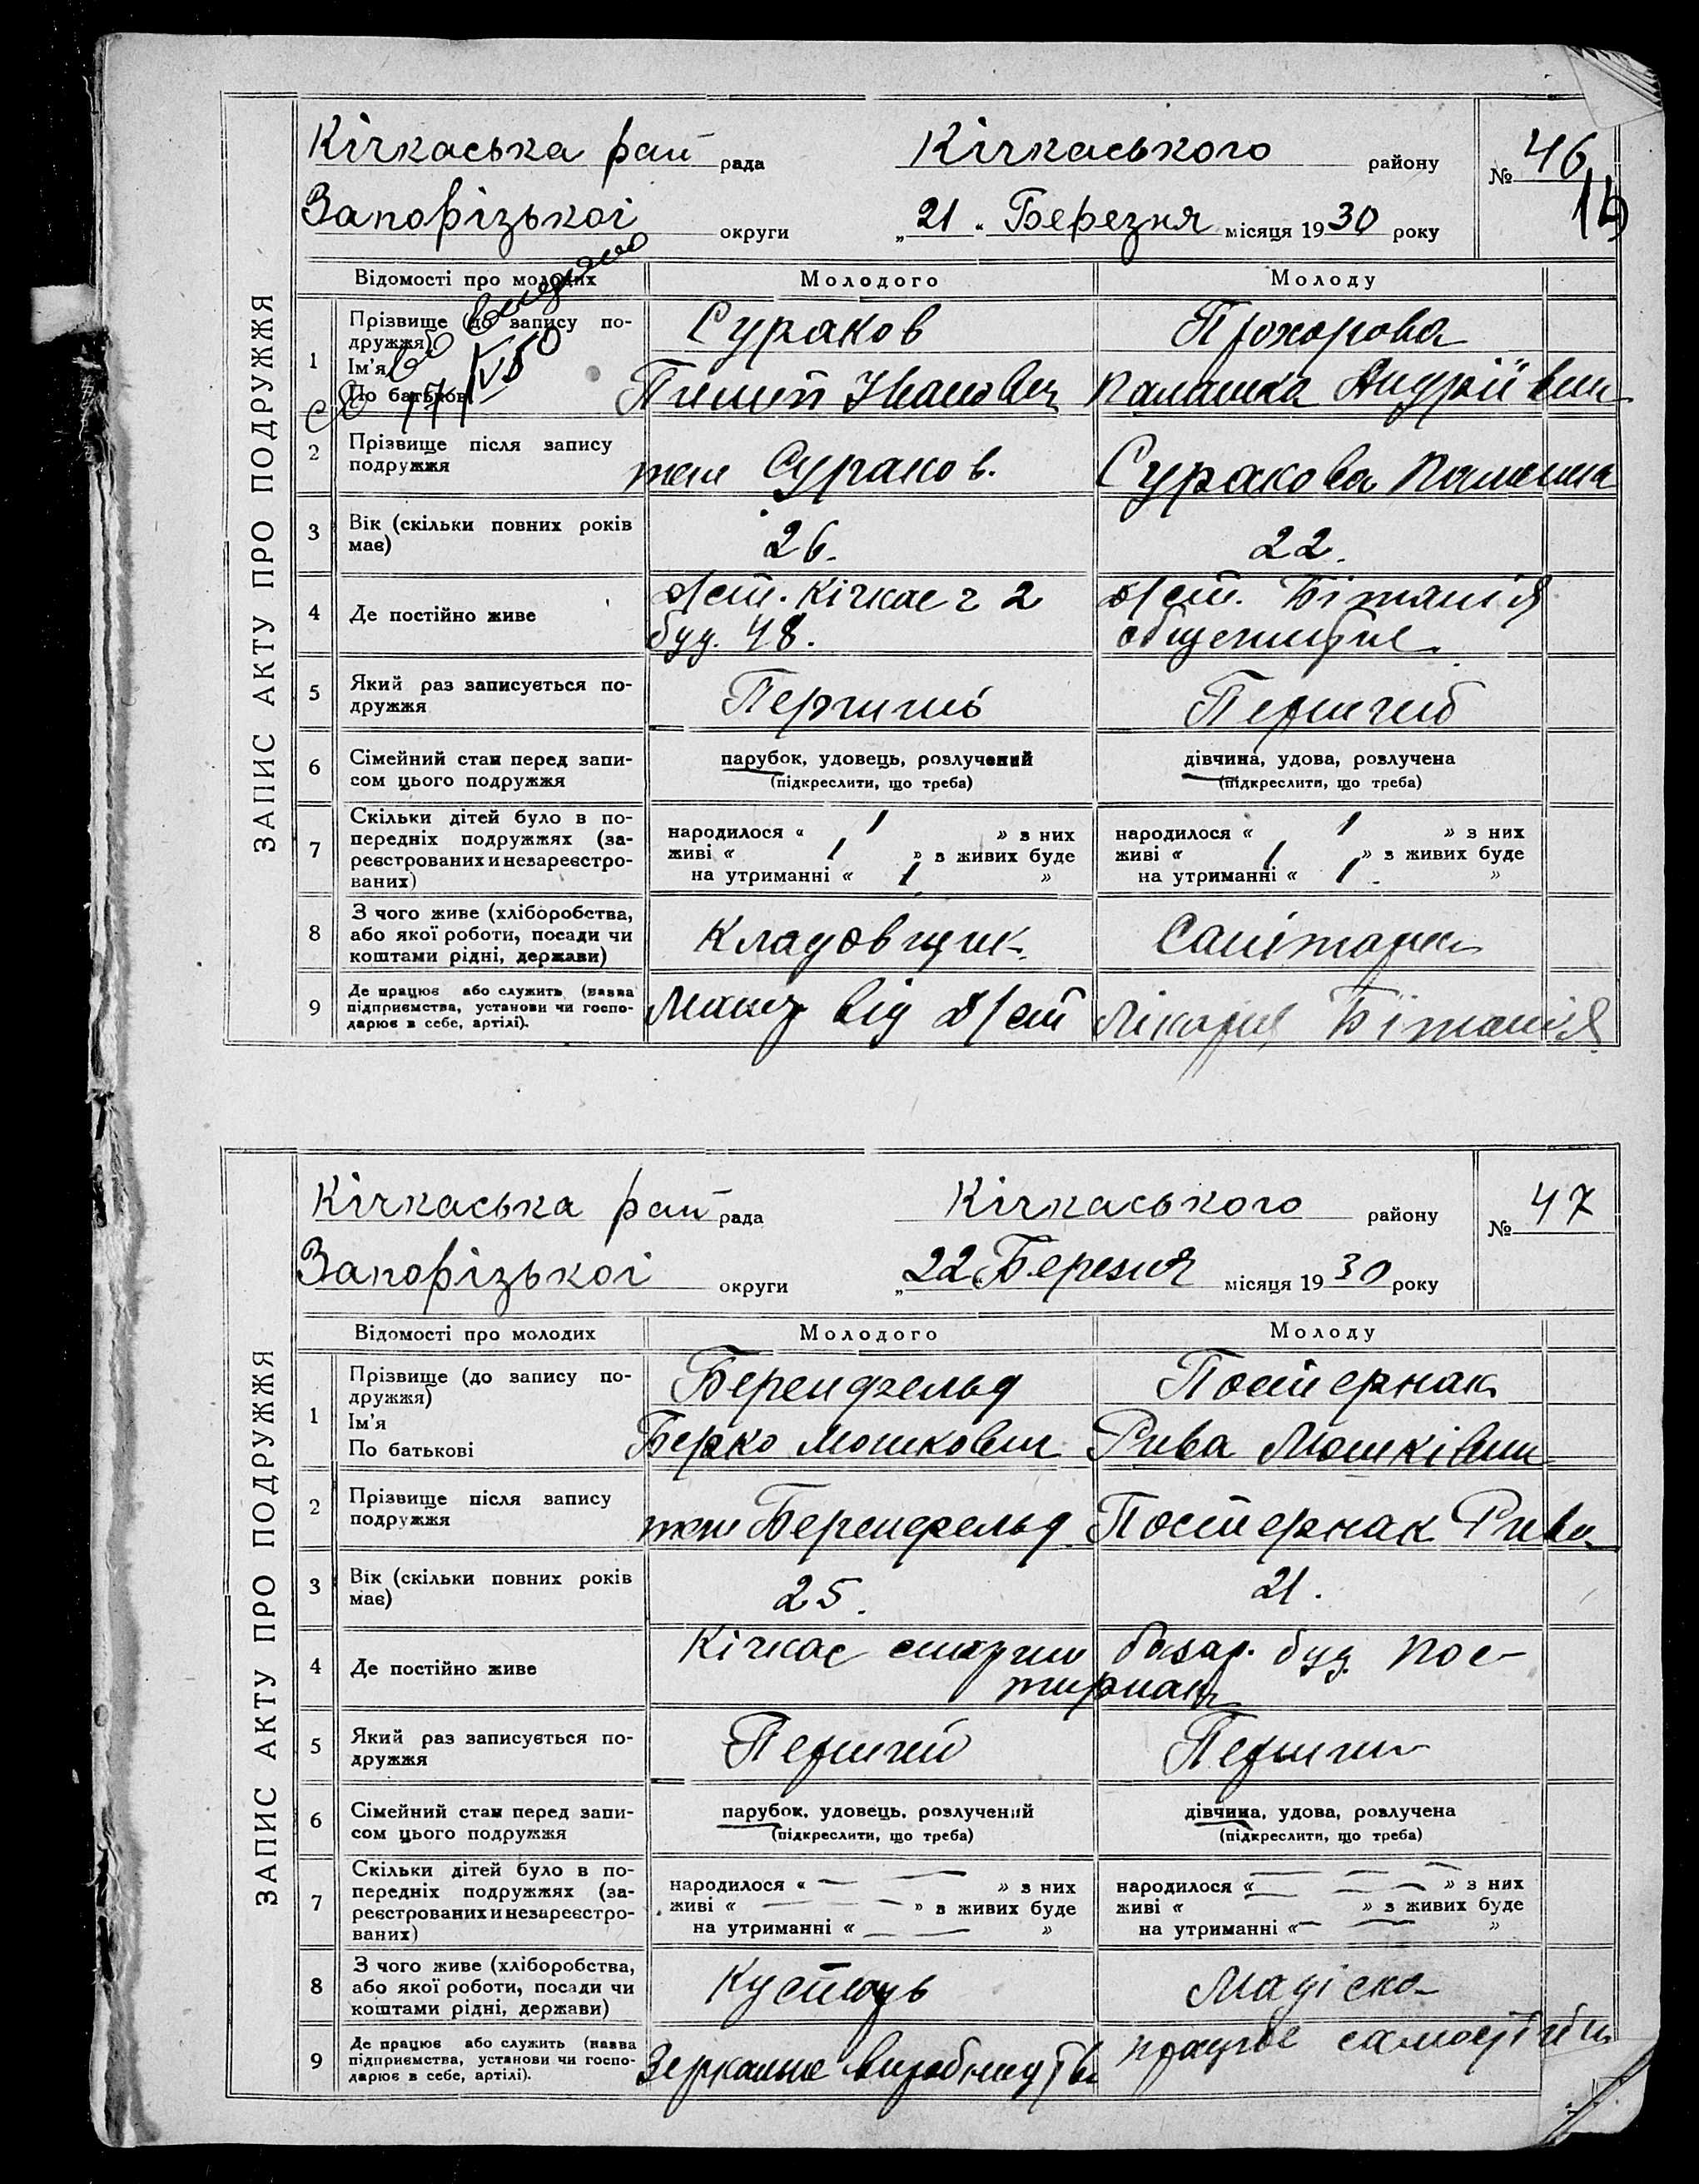 ЗАПИС АКТУ ПРО ПОДРУЖЖЯ
Кічкаська рай рада Кічкаського району № 46
Запорізькоі округи „21" Березня місяця 1930 року
Відомості про молодих Молодого Молоду
1 Прізвище (до запису по-
дружжя)
Ім'я
По батькові
Сураков Прохорова
Пимен Іванович Палашка Андріївни
2 Прізвище після запису
подружжя
теж Сураков. Суракова
3 Вік (скільки повних років
має)
26. 22.
4 Де постійно живе
д/ст. Кічкас 2
буд. 48.
д/ст. Бітанія
5 Який раз записується по-
дружжя
6 Сімейний стан перед запи-
сом цього подружжя
парубок, удовець, розлучений
(підкреслити, що треба)
дівчина, удова, розлучена
(підкреслити, що треба)
7 Скільки дітей було в по-
передніх подружжях (за-
реєстрованих и незареєстро-
ваних)
народилося « / » з них
живі « / » з живих буде
на утриманні « / »
народилося « / » з них
живі « / » з живих буде
на утриманні « / »
8 З чого живе (хліборобства,
або якої роботи, посади чи
коштами рідні, держави)
Кладовщик Санітарка
9 Де працює або служить (назва
підприємства, установи чи госпо-
дарює в себе, артілі).
від д/ст Лікарня Бітанія
ЗАПИС АКТУ ПРО ПОДРУЖЖЯ
Кічкаська рай рада Кічкаського району № 47
Запорізькоі округи „22" Березня місяця 1930 року
Відомості про молодих Молодого Молоду
1 Прізвище (до запису по-
дружжя)
Ім'я
По батькові
Беренфельд Постернак
Берко Мошкович Рива Мошківни
2 Прізвище після запису
подружжя
теж Беренфельд Постернак Рива
3 Вік (скільки повних років
має)
25. 21.
4 Де постійно живе
Кічкас базар. буд. Пос-
тирнак
5 Який раз записується по-
дружжя
Перший Перший
6 Сімейний стан перед запи-
сом цього подружжя
парубок, удовець, розлучений
(підкреслити, що треба)
дівчина, удова, розлучена
(підкреслити, що треба)
7 Скільки дітей було в по-
передніх подружжях (за-
реєстрованих и незареєстро-
ваних)
народилося « — — » з них
живі « — — » з живих буде
на утриманні « — — »
народилося « — — » з них
живі « — — » з живих буде
на утриманні « — — »
8 З чого живе (хліборобства,
або якої роботи, посади чи
коштами рідні, держави)
Кустарь Модіска
9 Де працює або служить (назва
підприємства, установи чи госпо-
дарює в себе, артілі).
Зеркальне виробництво працює самостійн